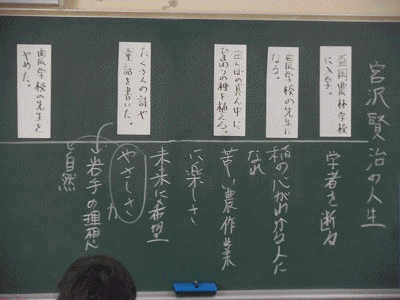 宮沢賢治の人生
盛岡農林学校
に入学。
学者を断る
農学校の先生に
なる。
植の心がわかる人に
なれ
田んぼの真ん中に
ひまわりの種を植える。
苦しい農作業
に楽しさ
たくさんの詩や
童話を書いた。
未来に希望
やさしさ
が
岩手の理想
自然
農学校の先生を
やめた。